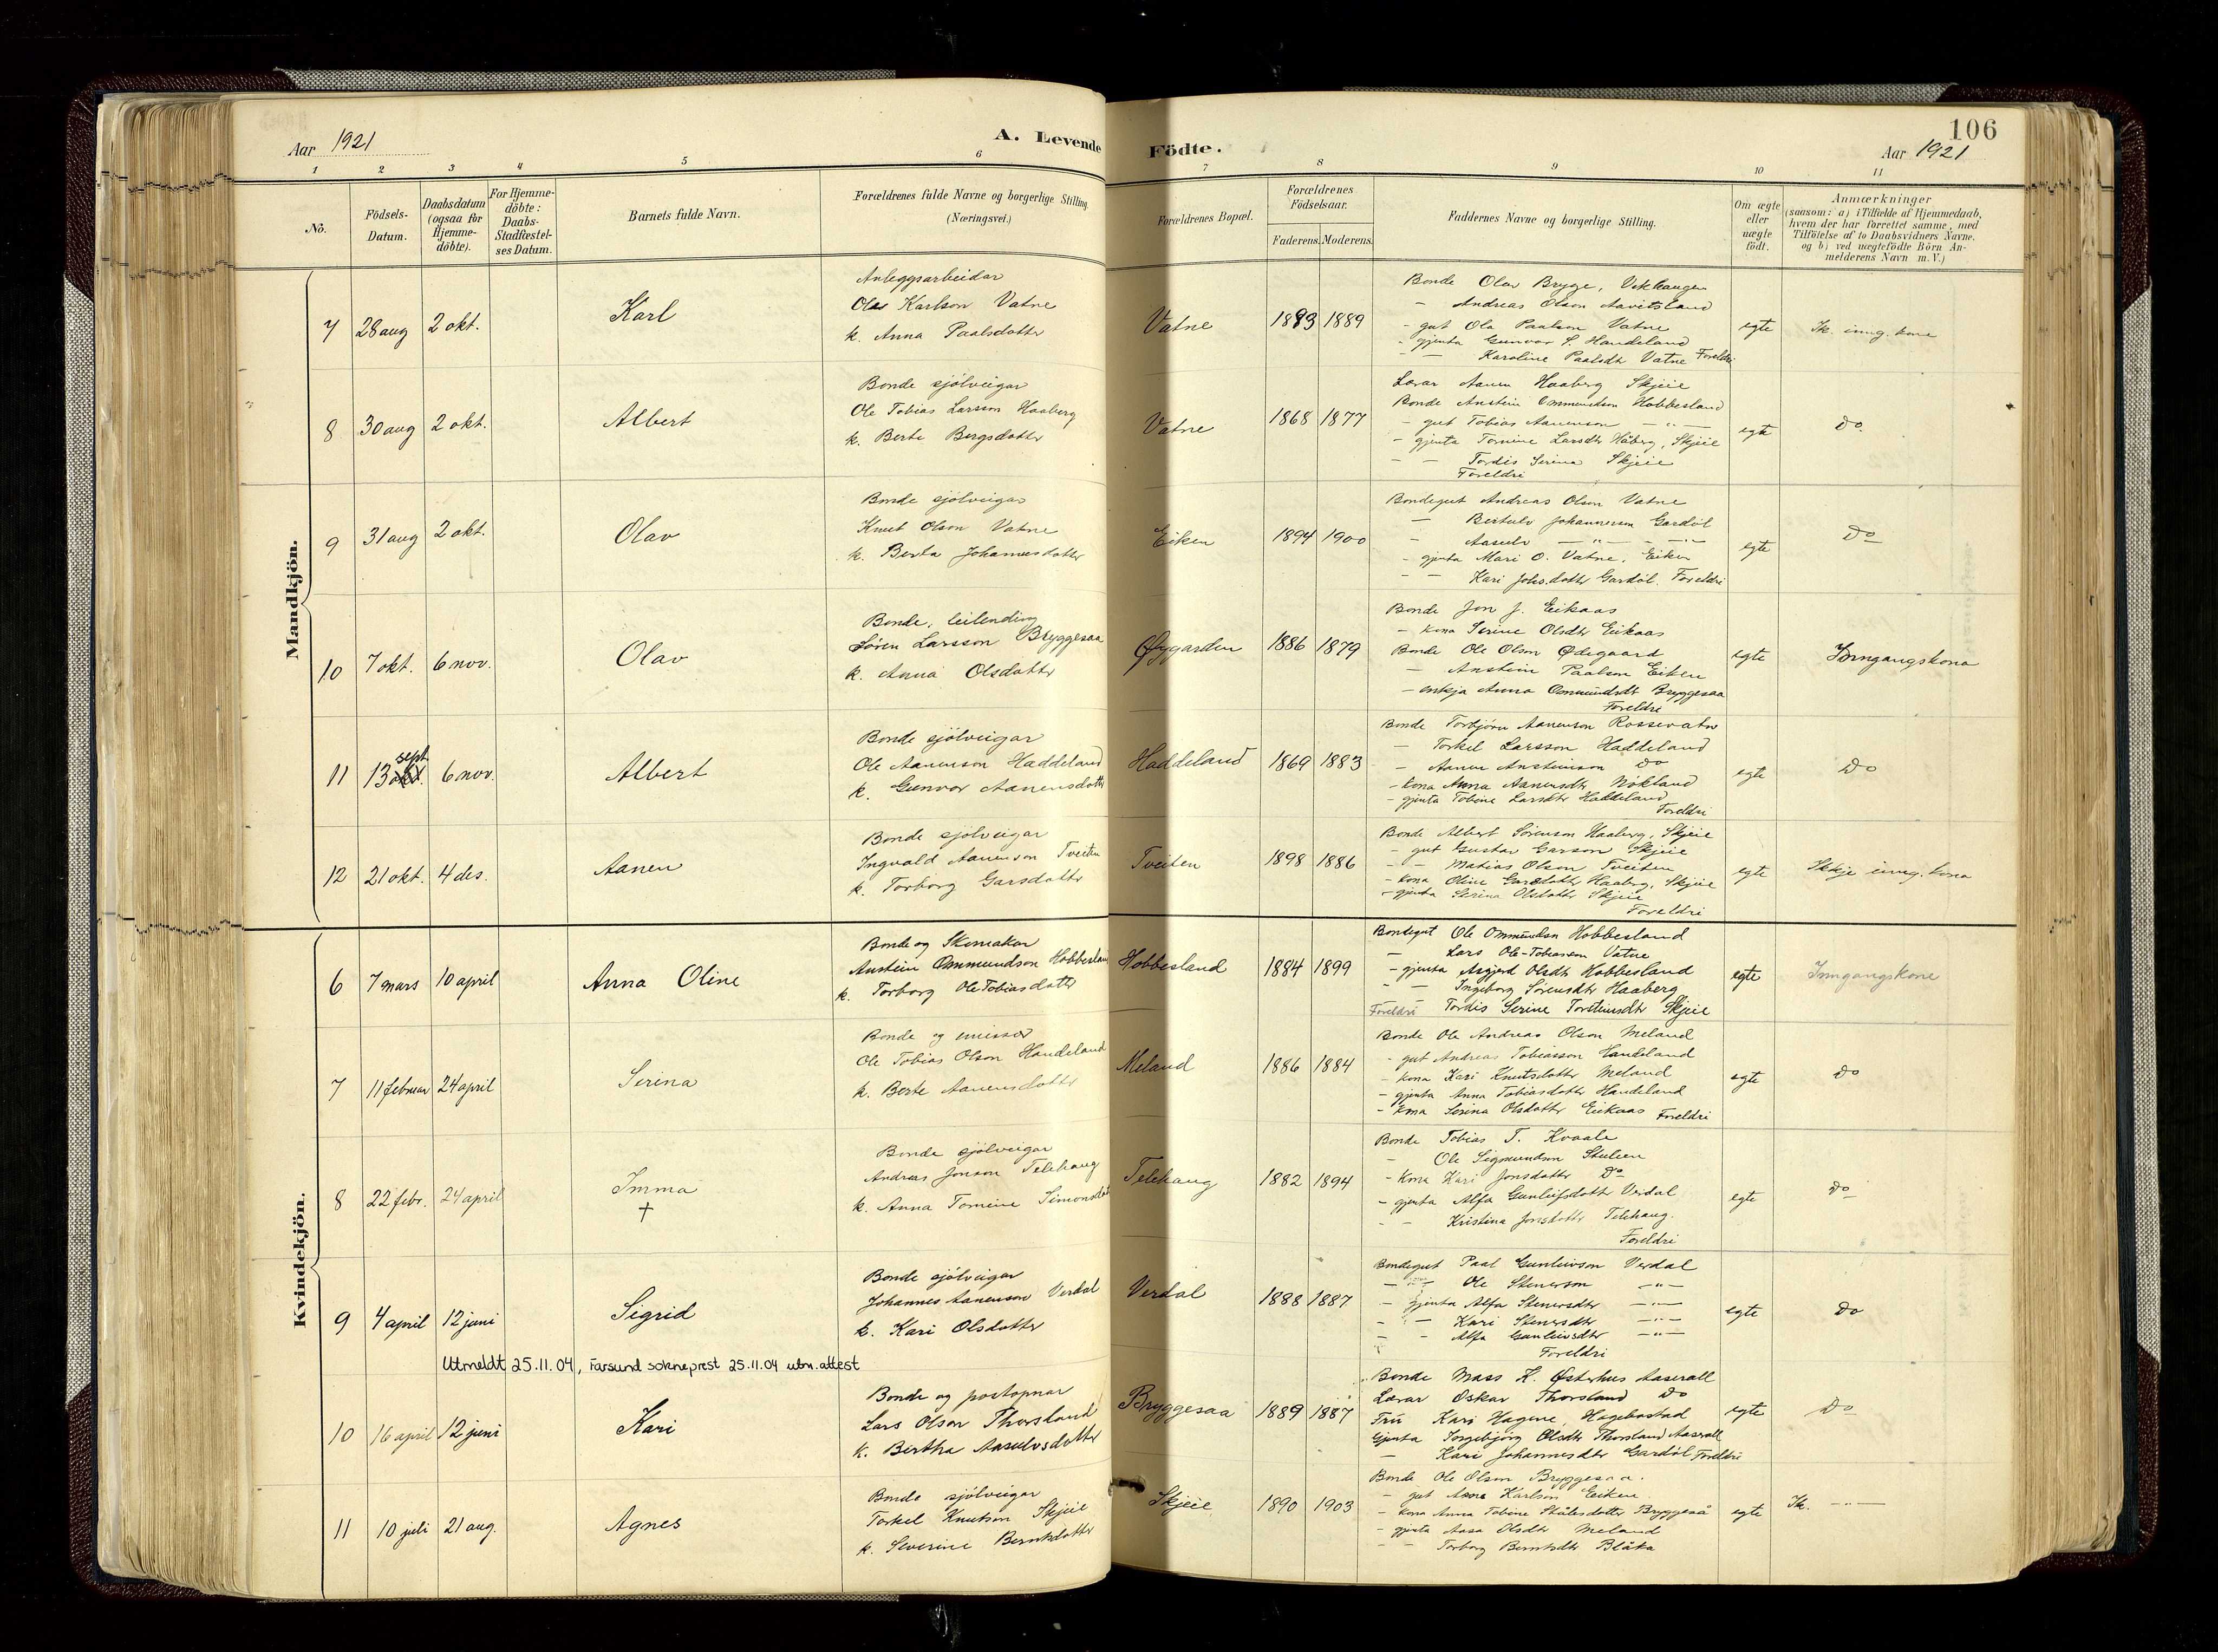 Aar 1921
A. Levende Födte.
106
Aar 1921
1 2 3 4 5 6 7 8 9 10 11
No.
Födsels-Datum.
Daabsdatum (ogsaa for Hjemme-döbte).
For Hjemme-döbte: Daabs-Stadfæstel-ses Datum.
Barnets fulde Navn.
Forældrenes fulde Navne og borgerlige Stilling. (Næringsvei.)
Forældrenes Bopæl.
Forældrenes Födselsaar.
Faderens. Moderens.
Faddernes Navne og borgerlige Stilling.
Om ægte eller uægte födt.
Anmærkninger
(saasom: a) i Tilfælde af Hjemmedaab,
hvem der har forrettet samme, med
Tilföielse af to Daabsvidners Navne.
og b) ved uægtefödte Börn An-
melderens Navn m. V.)
Mandkjön.
7 28 aug 2 okt. Karl
Anleggsarbeidar
Olav Karlson Vatne
k. Anna Paalsdotter
Vatne 1893 1889
Bonde Olav Brygge, Vikhaugen
- Andreas Olson Aavitsland
- gut Ola Paalson Vatne
- gjenta Gunvor S. Handeland
- Karoline Paalsdt Vatne Foreldri
egte
Sk. inng. kone
8 30 aug 2 okt. Albert
Bonde sjölveigar
Ole Tobias Larsson Haaberg
k. Berte Bergsdotter
Vatne 1868 1877
Lærar Aanen Haaberg Skjeie
Bonde Anstein Ommundson Hobbesland
- gut Tobias Aanenson - " -
- gjenta Tomine Larsdtr Håberg, Skjeie
- - Tordis Serine Skjeie
Foreldri
egte
Do
9 31 aug 2 okt. Olav
Bonde sjölveigar
Knut Olson Vatne
k. Berta Johannesdotter
Eiken 1894 1900
Bondegut Andreas Olson Vatne
- Bertulv Johannesson Gardöl
- Aasulv - " - - " -
- gjenta Mari O. Vatne, Eiken
- - Kari Johs.dotter Gardöl. Foreldri
egte
Do
10 7 okt. 6 nov. Olav
Bonde, leilending
Sören Larsson Bryggesaa
k. Anna Olsdotter
Øygarden 1886 1879
Bonde Jon J. Eikaas
- kona Serine Olsdtr Eikaas
Bonde Ole Olson Ødegaard
- Anstein Paalson Eiken
- enkja Anna Ommundsdt Bryggesaa
Foreldri
egte
Inngangskona
11 13 sept 6 nov. Albert
Bonde sjölveigar
Ole Aanenson Haddeland
k. Gunvor Aanensdotter
Haddeland 1869 1883
Bonde Torbjörn Aanenson Rossevatn
- Torkel Larsson Haddeland
- Aanen Ansteinson Do
- kona Anna Aanensdtr Nökland
- gjenta Tobine Larsdtr Haddeland
Foreldri
egte
Do
12 21 okt. 4 des. Aanen
Bonde sjölveigar
Ingvald Aanenson Tveiten
k. Torborg Garsdotter
Tveiten 1898 1886
Bonde Albert Sörenson Haaberg, Skjeie
- gut Gustav Garson Skjeie
- - Matias Olson Tveiten
- kona Oline Garsdotter Haaberg, Skjeie
- gjenta Serina Olsdotter Skjeie
Foreldri
egte
Skkje inng. kona
Kvindekjön.
6 7 mars 10 april Anna Oline
Bonde og Skomakar
Anstein Ommundson Hobbesland
k. Torborg Ole Tobiasdotter
Hobbesland 1884 1899
Bondegut Ole Ommundson Hobbesland
- Lars Ole-Tobiasson Vatne
- gjenta Asgjerd Olsdt Hobbesland
- - Ingeborg Sörensdtr Haaberg
Foreldri Tordis Serine Torsteinsdtr Skjeie
egte
Inngangskone
7 11 februar 24 april Serina
Bonde og emissær
Ole Tobias Olson Handeland
k. Berte Aanensdotter
Meland 1886 1884
Bonde Ole Andreas Olson Meland
- gut Andreas Tobiasson Handeland
- kona Kari Knutsdotter Meland
- gjenta Anna Tobiasdotter Handeland
- kona Serina Olsdotter Eikaas Foreldri
egte
Do
8 22 febr. 24 april Imma †
Bonde sjölveigar
Andreas Jonson Telehaug
k. Anna Tomine Simonsdot
Telehaug 1882 1894
Bonde Tobias T. Kvaale
- Ole Sigmundson Stulien
- kona Kari Jonsdotter Do
- gjenta Alfa Gunleifsdotter Verdal
- - Kristina Jonsdotter Telehaug.
Foreldri
egte
Do
9 4 april 12 juni Sigrid
Bonde sjölveigar
Johannes Aanenson Verdal
k. Kari Olsdotter
Verdal 1888 1887
Bondegut Paal Gunleivson Verdal
- - Ole Stenerson - " -
- gjenta Alfa Stenersdtr - " -
- - Kari Stenersdtr - " -
- - Alfa Gunleivsdtr - " -
Foreldri
egte
Do
Utmeldt 25.11.04, Farsund sokneprest 25.11.04 utm.attest
10 16 april 12 juni Kari
Bonde og postopnar
Lars Olson Thorsland
k. Bertha Aasulvsdotter
Bryggesaa 1889 1887
Bonde Mass K. Østerhus Aaserall
Lærar Oskar Thorsland Do
Frú Kari Hagene, Hægebostad
Gjenta Ingebjörg Olsdtr Thorsland Aaserall
- Kari Johannesdtr Gardöl Foreldri
egte
Do
11 10 juli 21 aug. Agnes
Bonde sjölveigar
Torkel Knutson Skjeie
k. Severine Berntsdotter
Skjeie 1890 1903
Bonde Ole Olson Bryggesaa.
- gut Arne Karlson Eiken
- kona Anna Tobine Ståledotter Bryggeså
- gjenta Aasa Olsdtr Meland
- - Torborg Berntsdtr Blåka
egte
Sk. - " -